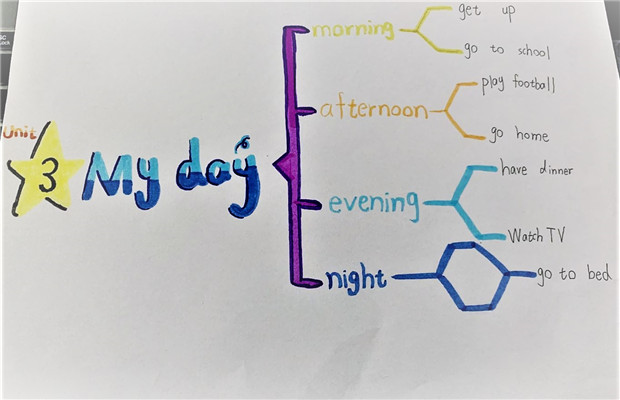 Unit
3 My day
morning
get up
go to school
afternoon
play football
go home
evening
have dinner
Watch TV
night
go to bed